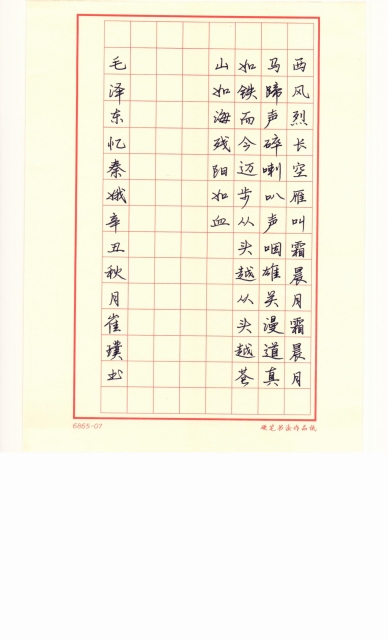 西风烈长空雁叫霜晨月霜晨月
马蹄声碎喇叭声咽雄关漫道真
如铁而今迈步从头越从头越苍
山如海残阳如血
毛泽东忆秦娥辛丑秋月崔璞书
6865-07
硬笔书法作品纸